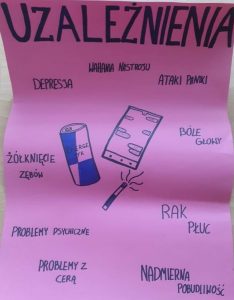 UZALEŻNIENIA
WAHANIA NASTROJU
DEPRESJA
ATAKI PANIKI
BÓLE
GŁOWY
ŻÓŁKNIĘCIE
ZĘBÓW
RAK
PŁUC
PROBLEMY PSYCHICZNE
PROBLEMY Z
CERĄ
NADMIERNA
POBUDLIWOŚĆ